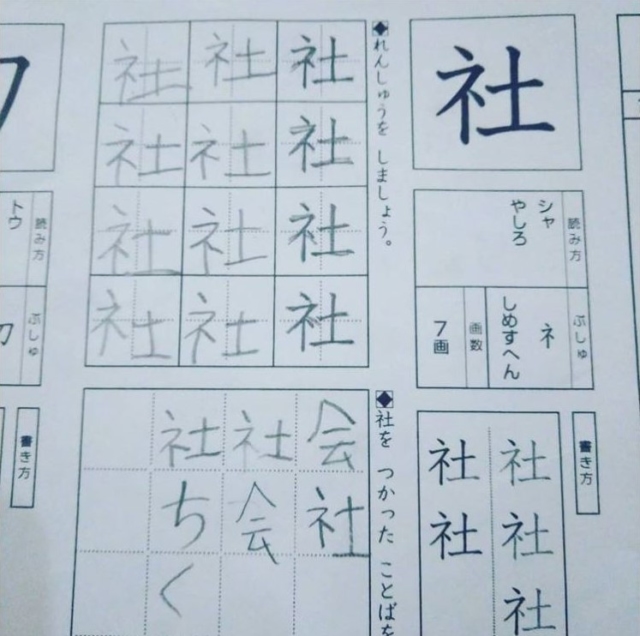 社
読み方
シャ
やしろ
ぶしゅ
ネ
しめすへん
画数
7画
書き方
社社社
社社
れんしゅうを しましょう。
社社社社
社社社社
社社社社
社を つかった ことばを
会社
社会
社ちく
読み方
トウ
ぶしゅ
書き方